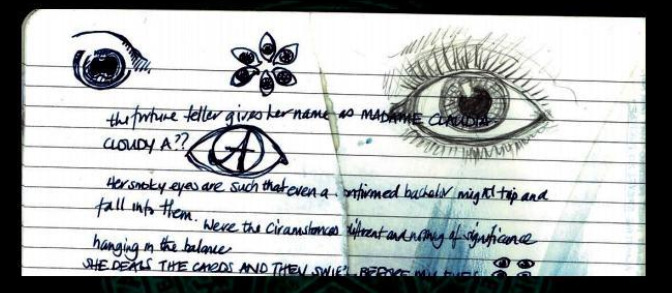 the fortune teller gives her name as MADAME CLAUDIA -
CLOUDY A??
A
Her smoky eyes are such that even a confirmed bachelor might trip and
fall into them. Were the circumstances different and nothing of significance
hanging in the balance
SHE DEALS THE CARDS AND THEN BEFORE MY EYES